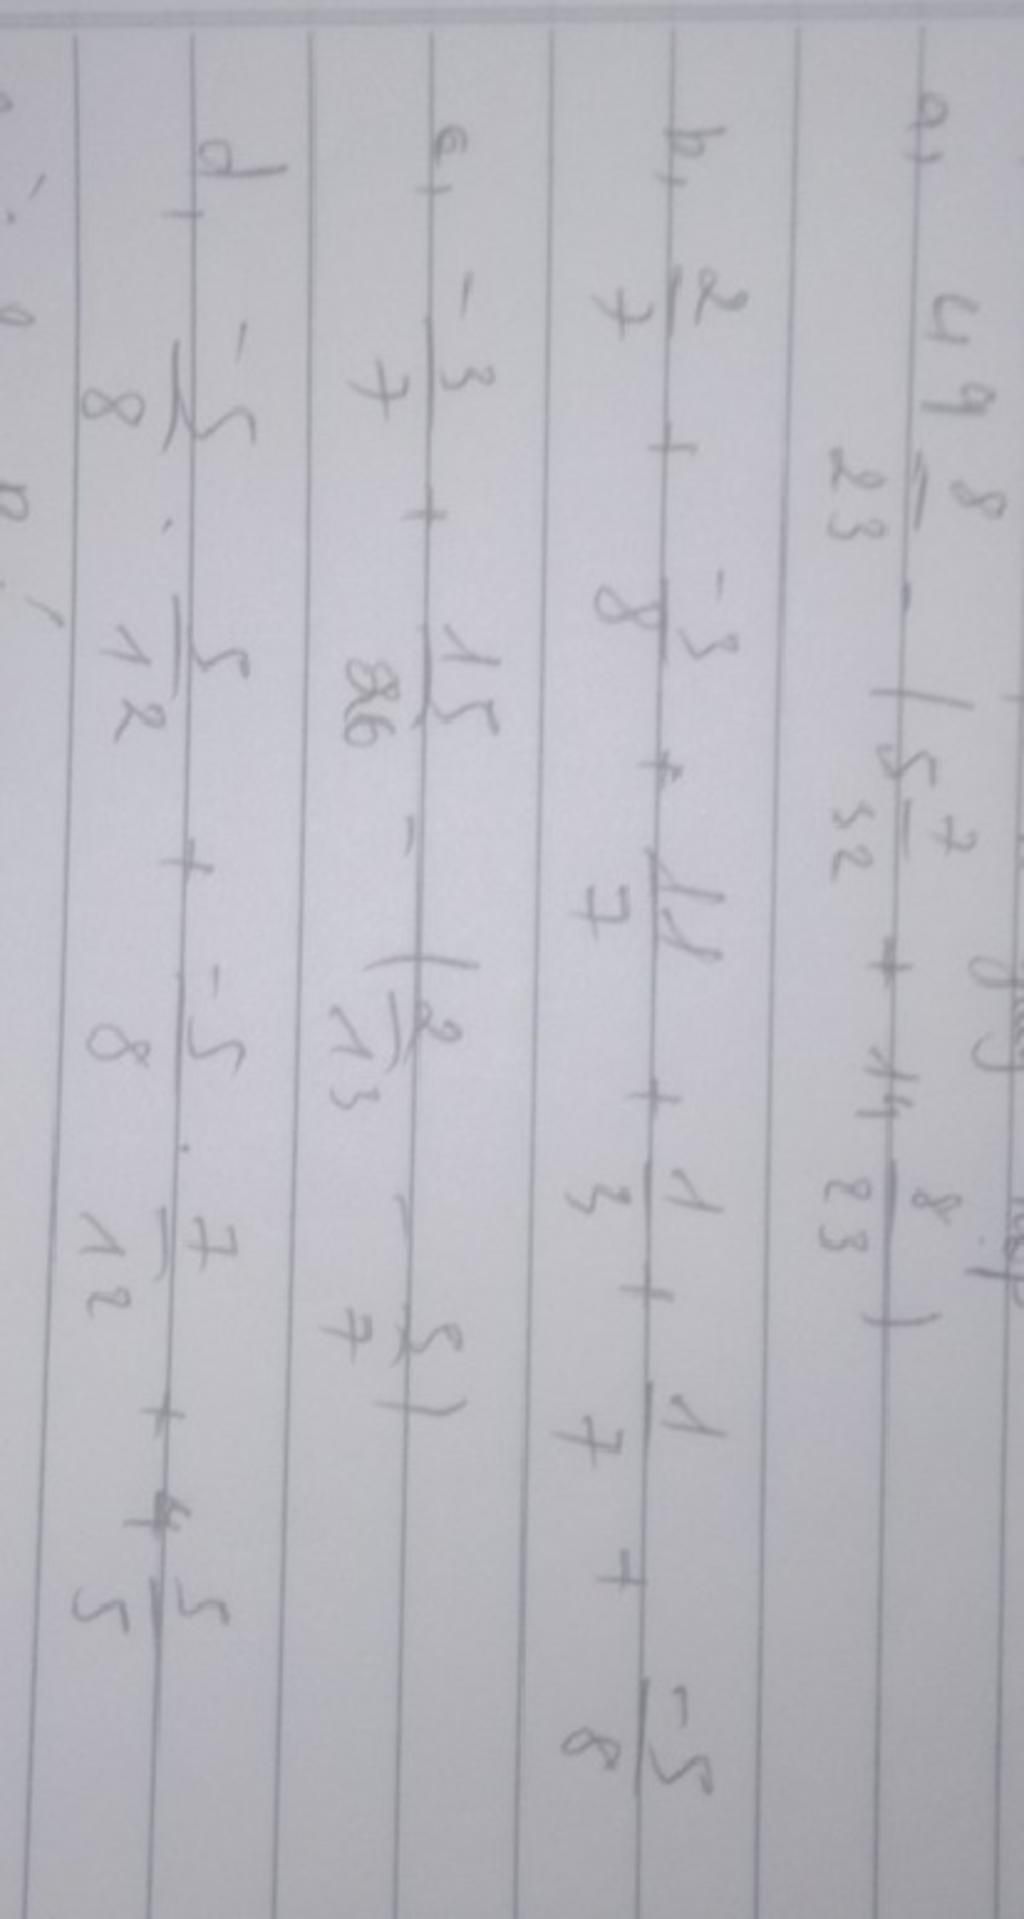 a, 49 8/23 - (5 7/32 + 14 8/23)
b, 2/7 + -3/8 + 11/7 + 1/3 + 1/7 + -5/8
c, -3/7 + 15/26 - (2/13 - 5/7)
d, -5/8 . 5/12 + -5/8 . 7/12 + 4 5/5